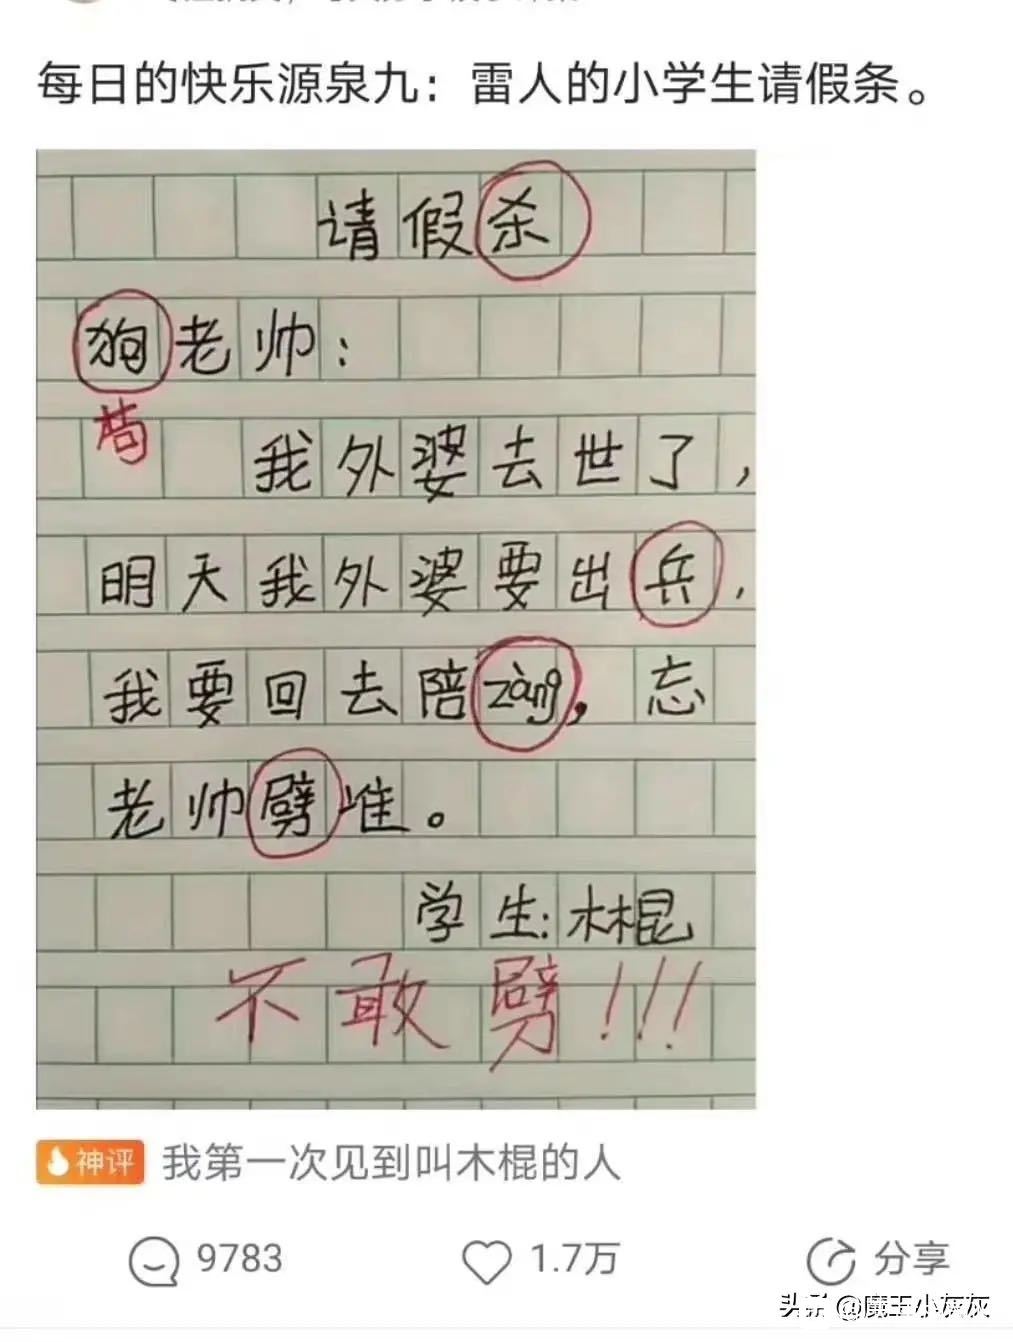 每日的快乐源泉九：雷人的小学生请假条。
请假杀
狗老帅：
苟
我外婆去世了，
明天我外婆要出兵，
我要回去陪zàng，忘
老帅劈准。
学生：木棍
不敢劈！！！
神评 我第一次见到叫木棍的人
9783 1.7万 分享
头条 @魔王小灰灰